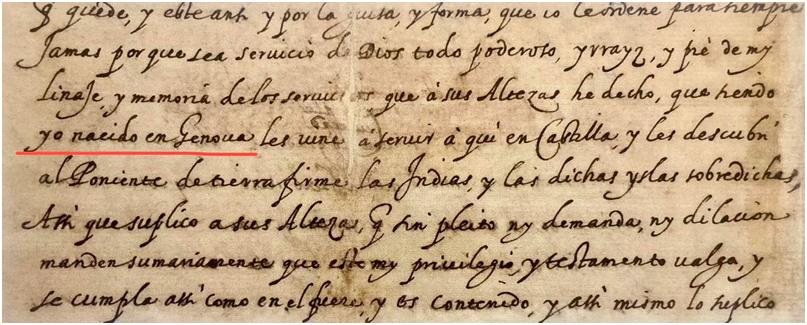 q̃ quede, y este ansi y por la guisa, y forma, que io le ordene para siempre
Jamas porque sea servicio de Dios todo poderoso, yrrayz, y piè de my
Linaje, y memoria de los servicios que à sus Altezas he decho, que siendo
yo nacido en Genova les vine à servir à quì en Castilla, y les descubrì
al Poniente de tierra firme las Indias, y las dichas yslas sobredichas,
Assì que suplico a sus Alteza, q̃ sin pleito ny demanda, ny dilacion
manden sumariamente que este my privilegio, y testamento valga, y
se cumpla assì como en el fuere, y es contenido, y assì mismo lo suplico